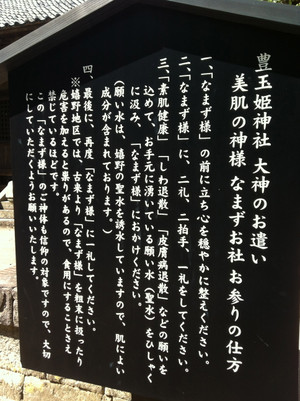 豊玉姫神社 大神のお遣い
美肌の神様 なまずお社 お参りの仕方
一、「なまず様」の前に立ち心を穏やかに整えてください。
二、「なまず様」に、二礼、二拍手、一礼をしてください。
三、「素肌健康」「しわ退散」「皮膚病退散」などの願いを
込めて、お手元に湧いている願い水(聖水)をひしゃく
に汲み、「なまず様」におかけください。
(願い水は、嬉野の聖水を誘水していますので、肌によい
成分が含まれております。)
四、最後に、再度「なまず様」に一礼してください。
※嬉野地区では、古来より「なまず様」を粗末に扱ったり
危害を加えると祟りがあるので、食用にすることさえ
禁じているほどです。
この「なまず様」のご神体も信仰の対象ですので、大切
にしていただくようお願いいたします。